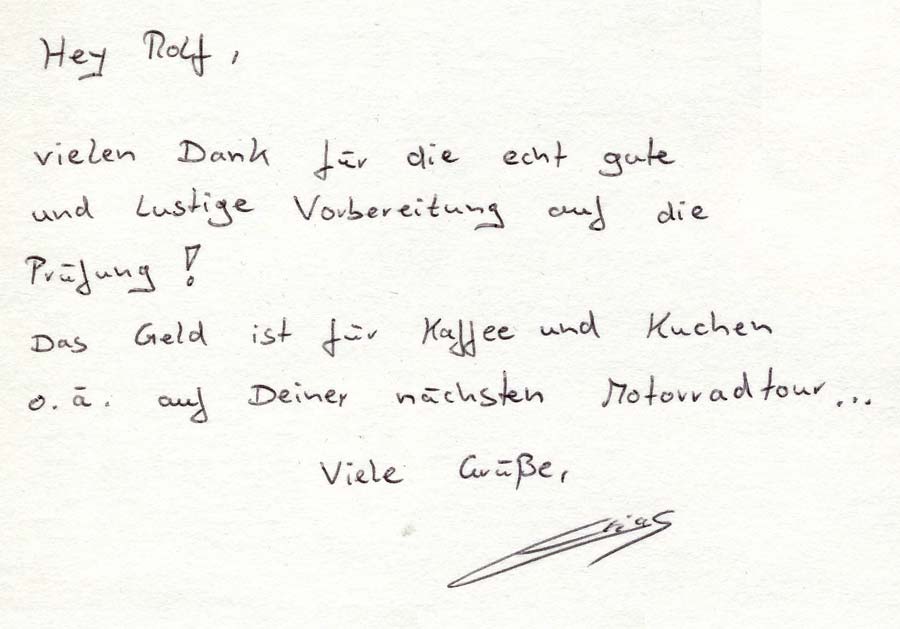 Hey Rolf,
vielen Dank für die echt gute
und lustige Vorbereitung auf die
Prüfung!
Das Geld ist für Kaffee und Kuchen
o.ä. auf Deiner nächsten Motorradtour...
Viele Grüße,